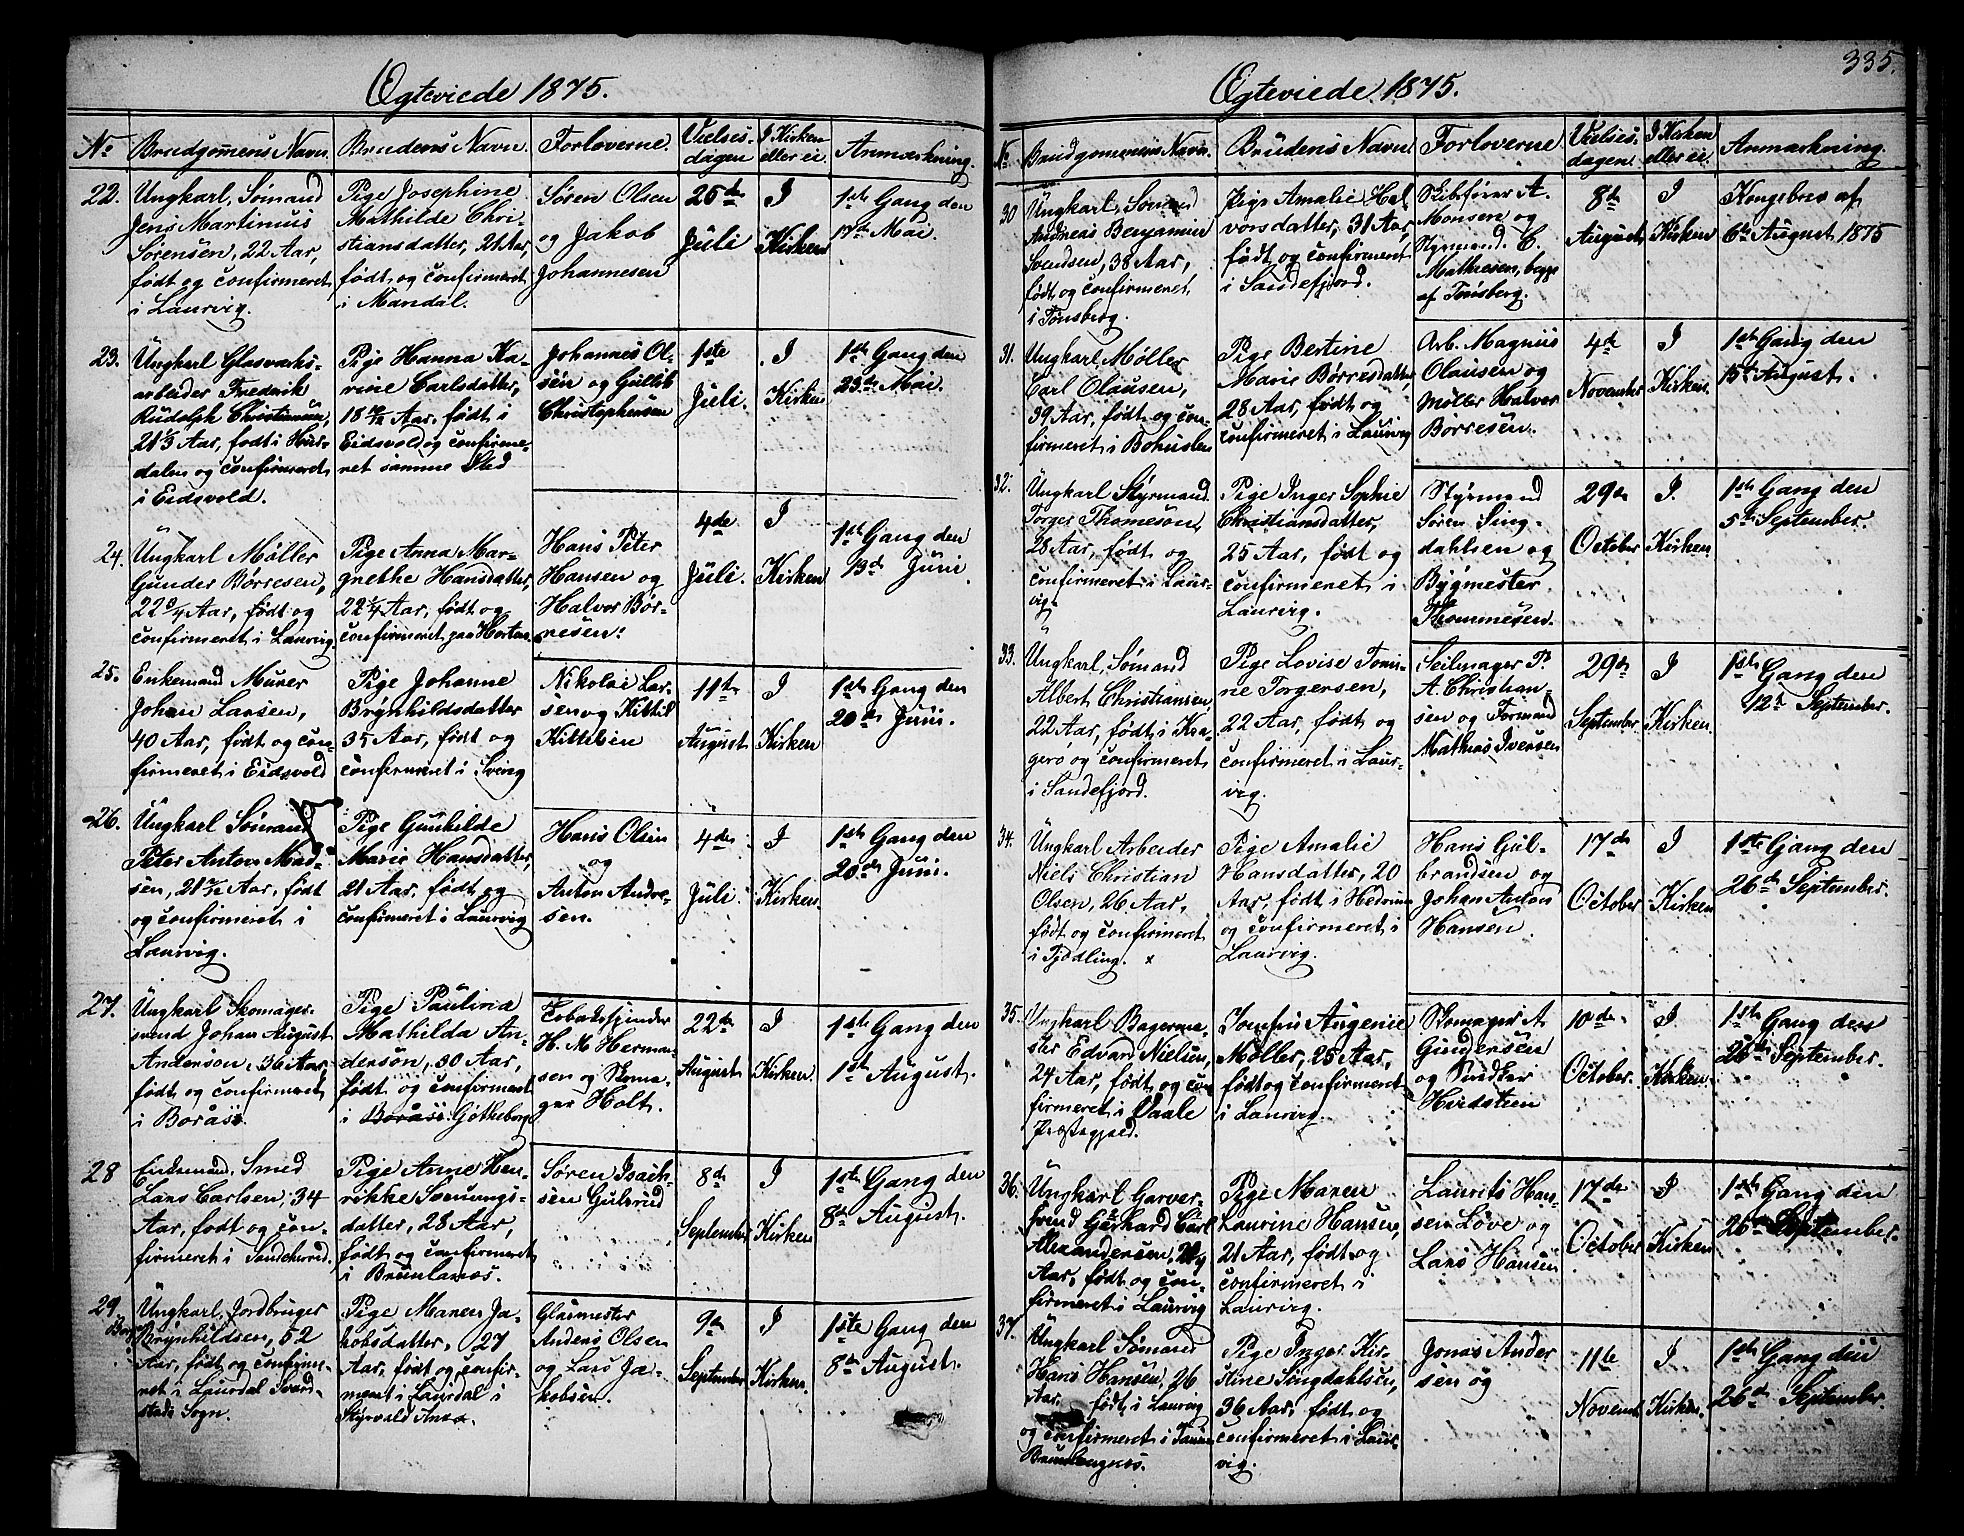 Ægteviede 1875.
No
Brudgommens Navn.
Brudens Navn.
Forloverne.
Vielses-
dagen
I Kirken
eller ei
Anmærkning.
22.
Ungkarl, Sømand
Jens Martinius
Sørensen, 22 Aar,
født og confirmeret
i Laurvig.
Pige Josephine
Mathilde Chri-
stiansdatter, 21 Aar,
født og confirmeret
i Mandal.
Søren Olsen
og Jakob
Johannesen
25de
Juli
I
Kirken
1ste Gang den
17de Mai.
23.
Ungkarl Glasværks-
arbeider Frederik
Rudolph Christiansen,
21 1/3 Aar, født i Hur-
dalen og confirmeret
i Eidsvold.
Pige Hanna Ka-
rine Carlsdatter,
Aar, født i
Eidsvold og confirme-
ret samme Sted
Johannes Ol-
sen og Gullik
Christophersen
1ste
Juli.
I
Kirken
1ste Gang den
23de Mai.
24.
Ungkarl Møller
Gunder Børresen,
Aar, født og
confirmeret i Laurvig.
Pige Anna Mar-
grethe Hansdatter,
22 1/4 Aar, født og
confirmeret paa Horten
Hans Peter
Hansen og
Halvor Bør-
resen.
4de
Juli.
I
Kirken
1ste Gang den
13de Juni
25.
Enkemand Murer
Johan Larsen,
40 Aar, født og con-
firmeret i Eidsvold
Pige Johanne
Brynhildsdatter
35 Aar, født og
confirmeret i
Nikolai Lar-
sen og Kittil
Kittilsen
11te
August
I
Kirken
1ste Gang den
20de Juni.
26.
Ungkarl Sømand
Peter Anton Mad-
sen, Aar, født
og confirmeret i
Laurvig.
Pige Gunhilde
Marie Hansdatter,
21 Aar, født og
confirmeret i Laurvig
Hans Olsen
og
Anton Andre-
sen.
4de
Juli.
I
Kirken.
1ste Gang den
20de Juni.
27.
Ungkarl Skomager-
svend Johan August
Anderson, 36 Aar,
født og confirmeret
i Borås.
Pige Paulina
Mathilda An-
derson, 30 Aar,
født og confirmeret
i Borås Gøtheborg
Tobaksspinder
H. M. Herman-
sen og Skoma-
ger Holt.
22de
August
I
Kirken.
1ste Gang den
1ste August.
28
Enkemand, Smed
Lars Carlsen, 34
Aar, født og con-
firmeret i Sandeherred.
Pige Anne Hen-
rikke Sørensens-
datter, 28 Aar,
født og confirmeret
i Brunlanæs.
Søren Isack-
sen Gulsrud
8de
September
I
Kirken
1ste Gang den
8de August.
29.
Ungkarl, Jordbruger
Brynhildsen, 52
Aar, født og confirme-
ret i Laurdal
Sogn.
Pige Maren Ja-
kobsdatter, 27
Aar, født og confir-
meret i Laurdal i
Glasmester
Anders Olsen
og Lars Ja-
kobsen.
9de
September
I
Kirken.
1ste Gang den
8de August.
335.
Ægteviede 1875.
No
Brudgommens Navn.
Brudens Navn
Forloverne
Vielses-
dagen.
I Kirken
eller ei.
Anmærkning.
30
Ungkarl, Sømand
Andreas Benjamin
Svendsen, 38 Aar,
født og confirmeret
i Tønsberg.
Pige Amalie Hal-
vorsdatter, 31 Aar,
født og confirmeret
i Sandefjord.
Skibsfører A.
Monsen og
Styrmand C.
Mathiesen, begge
af Tønsberg.
8de
August
I
Kirken
Kongebrev af
6te August 1875
31.
Ungkarl, Møller
Carl Olausen,
39 Aar, født og con-
firmeret i Bohuslen
Pige Bertine
Marie Børresdatter,
28 Aar, født og
confirmeret i Laurvig
Arb. Magnus
Olausen og
Møller Halvor
Børresen.
4de
November
I
Kirken.
1ste Gang den
15de August.
32.
Ungkarl Styrmand
Torger Thomesøn,
28 Aar, født og
confirmeret i Laur-
vig.
Pige Inger Sophie
Christiansdatter,
25 Aar, født og
confirmeret i
Laurvig.
Styrmand
Søren Sing-
dahlsen og
Bygmester
Thommesen.
29de
October
I
Kirken
1ste Gang den
5te September.
33.
Ungkarl, Sømand
Albert Christiansen,
22 Aar, født i Kra-
gerø og confirmeret
i Sandefjord.
Pige Lovise Tomi-
ne Torgersen,
22 Aar, født og
confirmeret i Laur-
vig.
Seilmager P.
A. Christian-
sen og Formand
Mathias Iversen
29de
September
I
Kirken.
1ste Gang den
12te September.
34.
Ungkarl Arbeider
Niels Christian
Olsen, 26 Aar,
født og confirmeret
i Tjødling.
Pige Amalie
Hansdatter, 20
Aar, født i Hedrum
og confirmeret i
Laurvig.
Hans Gul-
brandsen og
Johan Anton
Hansen.
17de
October
I
Kirken
1ste Gang den
26de September.
35.
Ungkarl Bagerme-
ster Edvard Nielsen,
24 Aar, født og con-
firmeret i Vaale
Præstegjæld.
Jomfru Augenie
Møller, 25 Aar,
født og confirmeret
i Laurvig.
Skomager A
Gundersen
og Snedker
Hardstein
10de
October.
I
Kirken.
1ste Gang den
26de September.
36.
Ungkarl Garver-
svend Gerhard Carl
Alexandersen,
Aar, født og con-
firmeret i Laurvig
Pige Maren
Laurine Hansen,
21 Aar, født og
confirmeret i
Laurvig.
Laurits Han-
sen Løve og
Lars Hansen
17de
October
I
Kirken
1ste Gang den
26de September.
37.
Ungkarl Sømand
Hans Hansen, 26
Aar, født i Laurvig
og confirmeret i
Pige Inger Kir-
stine Singdahlsen,
36 Aar, født og
confirmeret i Laur-
vig.
Jonas Ander
sen og
11te
Novemb
I
Kirken.
1ste Gang den
26de September.